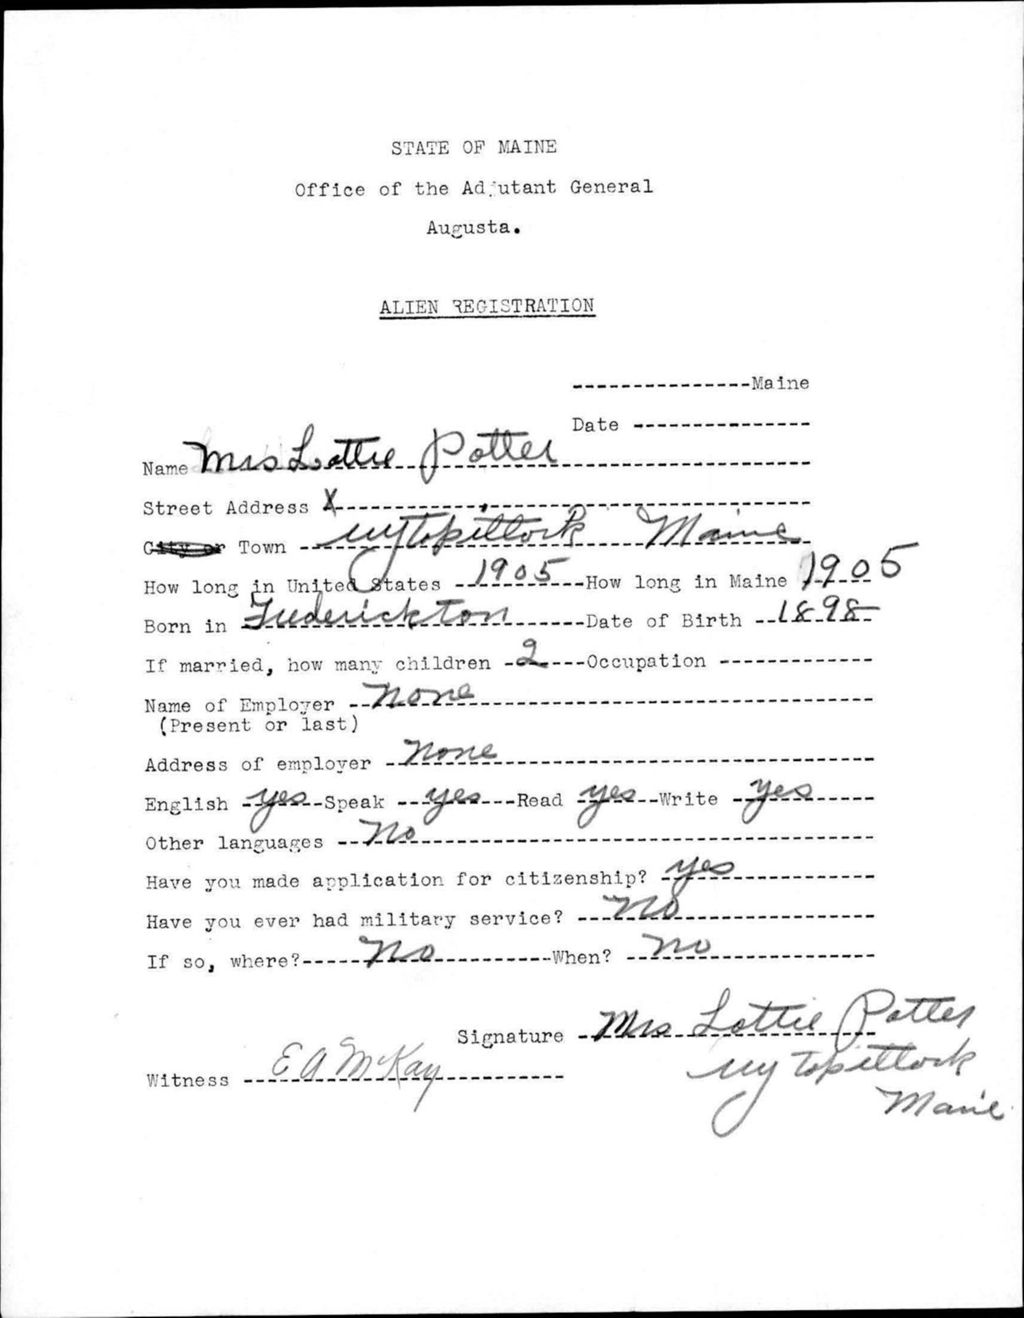 STATE OF MAINE
Office of the Adjutant General
Augusta.
ALIEN REGISTRATION
---------------Maine
Date ---------------
Name Mrs Lottie Potter
Street Address X
City or Town Wytopitlock Maine
How long in United States 1905 How long in Maine 1905
Born in Frederickton Date of Birth 1898
If married, how many children 2 Occupation -------------
Name of Employer None
(Present or last)
Address of employer None
English yes Speak yes Read yes Write yes
Other languages No
Have you made application for citizenship? yes
Have you ever had military service? No
If so, where? No When? No
Signature Mrs Lottie Potter
Wytopitlock
Maine
Witness E A McKay